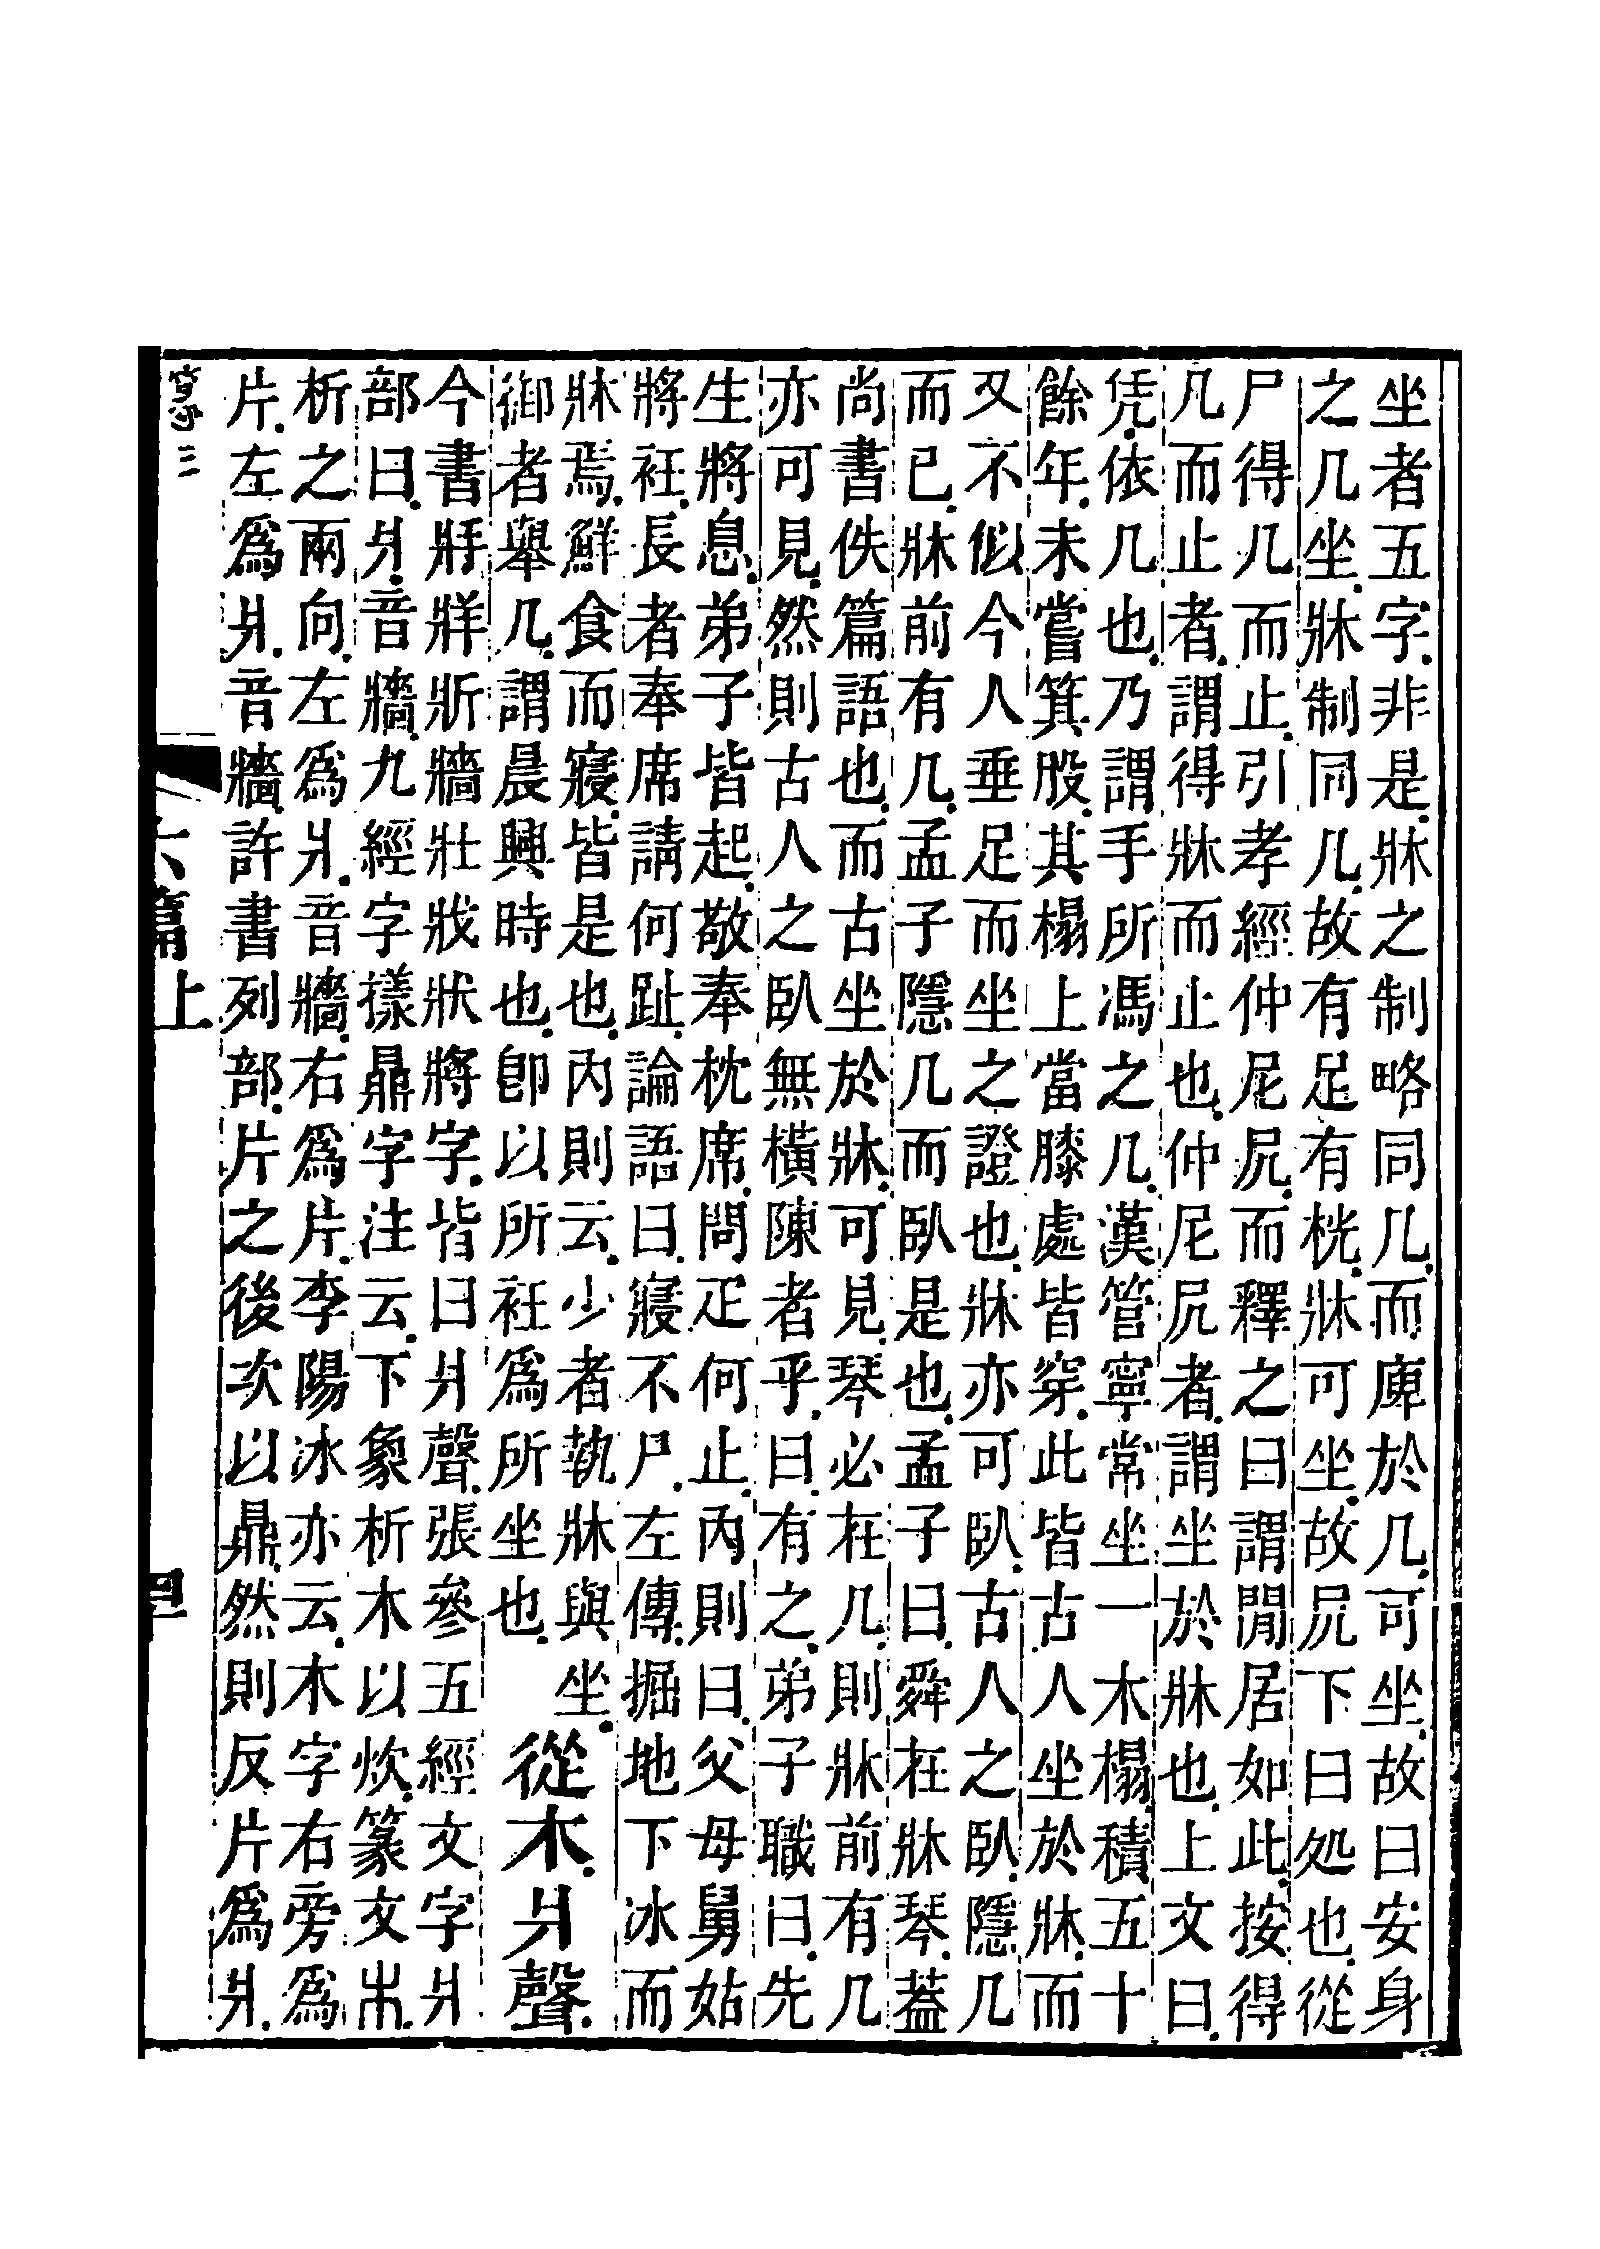 坐者五字.非是.牀之制略同几.而庳於几.可坐.故曰安身
之几坐.牀制同几.故有足有桄.牀可坐.故凥下曰処也.從
尸得几而止.引孝經仲尼凥.而釋之曰謂閒居如此.按得
几而止者.謂得牀而止也.仲尼凥者.謂坐於牀也.上文曰.
凭.依几也.乃謂手所馮之几.漢管寧常坐一木榻.積五十
餘年.未嘗箕股.其榻上當膝處皆穿.此皆古人坐於牀.而
又不似今人垂足而坐之證也.牀亦可臥.古人之臥.隱几
而已.牀前有几.孟子隱几而臥是也.孟子曰.舜在牀琴.葢
尚書佚篇語也.而古坐於牀.可見.琴必在几.則牀前有几
亦可見.然則古人之臥無橫陳者乎.曰.有之.弟子職曰.先
生將息.弟子皆起.敬奉枕席.問疋何止.內則曰.父母舅姑
將衽.長者奉席請何趾.論語曰.寢不尸.左傳.掘地下冰而
牀焉.鮮食而寢.皆是也.內則云.少者執牀與坐.
御者舉几.謂晨興時也.卽以所衽爲所坐也.
從木.爿聲.
今書牀牂斨牆壯戕狀將字.皆曰爿聲.張參五經文字爿
部曰.爿.音牆.九經字樣鼎字注云.下象析木以炊.篆文木.
析之兩向.左爲爿.音牆.右爲片.李陽冰亦云.木字右旁爲
片.左爲爿.音牆.許書列部.片之後次以鼎.然則反片爲爿.
六篇上
四